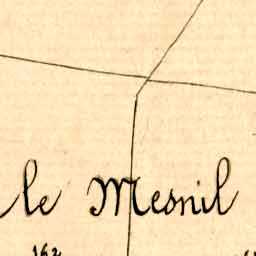 le Mesnil
162